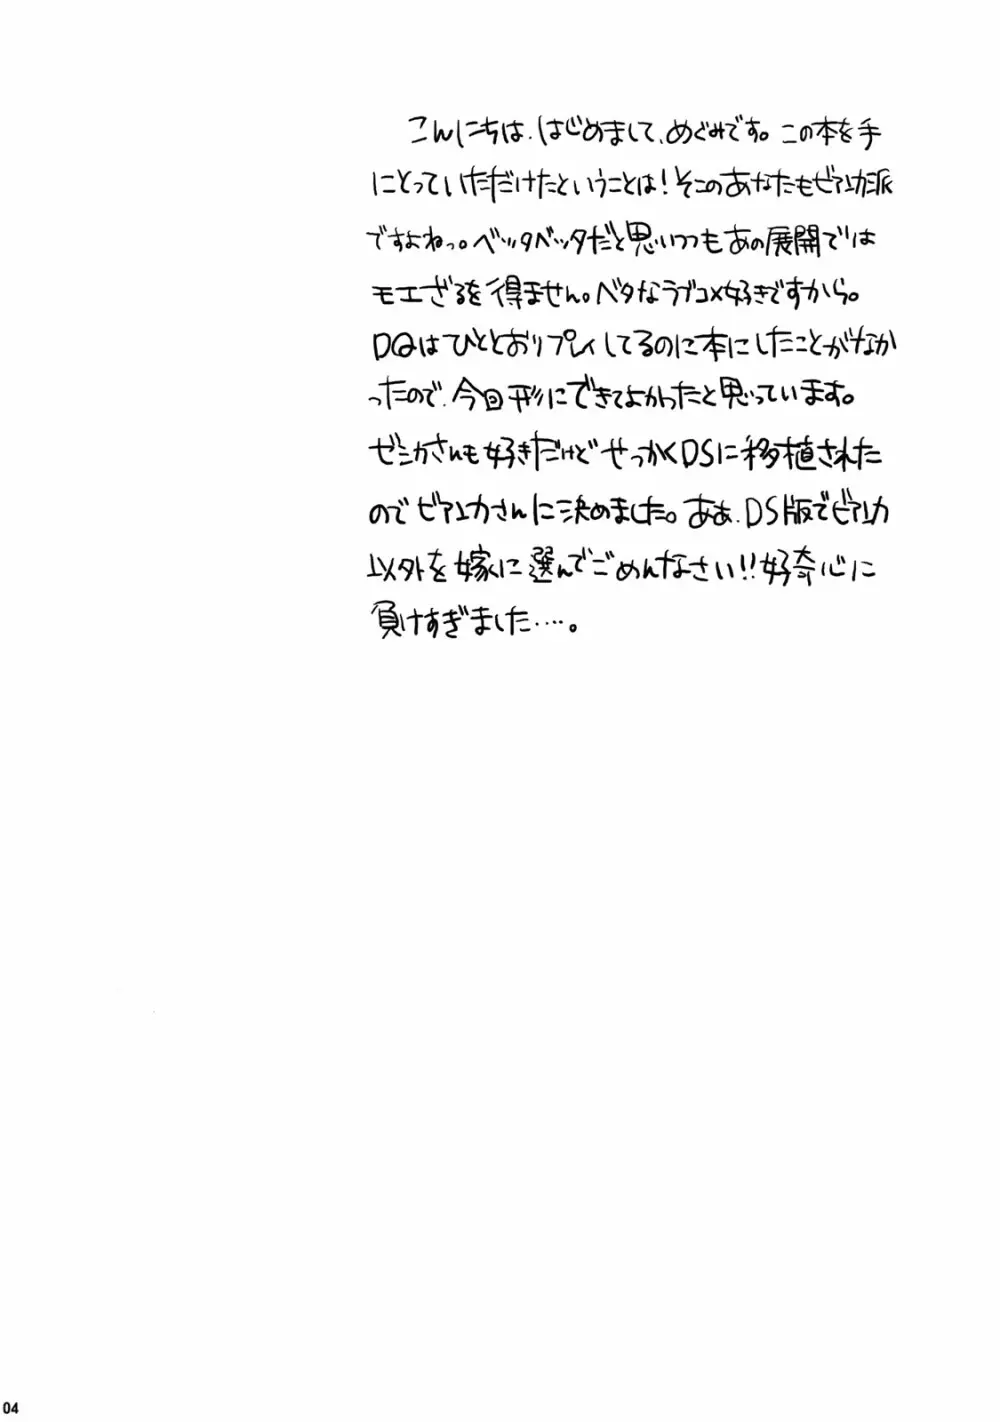 こんにちは、はじめまして、めぐみです。この本を手
にとっていただけたということは!そこのあなたもビアンカ派
ですよねっ。ベッタベッタだと思いつつもあの展開では
モエざるを得ません。ベタなラブコメ好きですから。
DQはひととおりプレイしてるのに本にしたことがなか
ったので、今回形にできてよかったと思っています。
ゼシカさんも好きだけどせっかくDSに移植された
のでビアンカさんに決めました。ああ、DS版でビアンカ
以外を嫁に選んでごめんなさい!!好奇心に
負けすぎました‥‥。
04